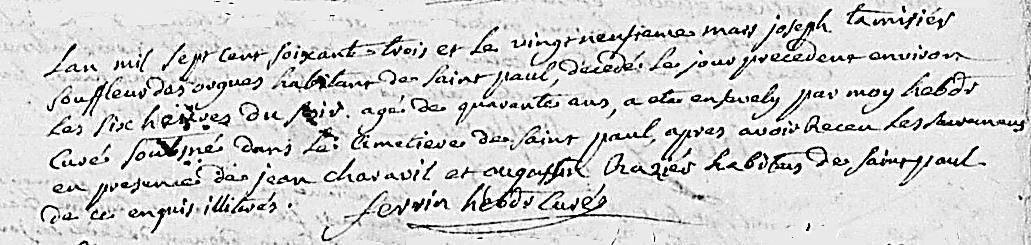 Lan mil sept cent soixante trois et le vingt neufieme mars joseph tamisiér
souffleur des orgues habitant de saint paul, décedé le jour precedent environ
les six heures du soir, agé de quarante ans, a eté ensevely par moy hebdr
curé soubsné dans le cimetiere de saint paul, apres avoir receu les sacremens
en presence de jean charavil et augustin habitans de saint paul
de ce enquis illiterés. ferrin hebdr curés